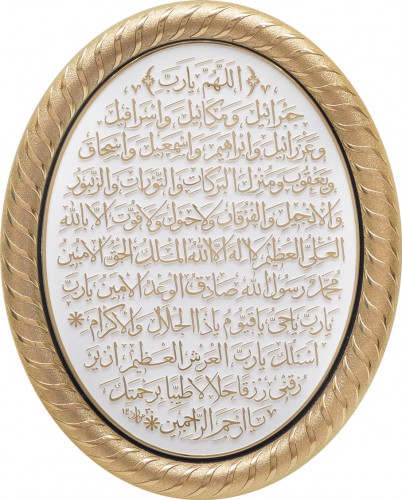 ﴿ اَللّٰهُمَّ يَارَبَّ ﴾
جَبْرَائِيلَ وَمِيكَائِيلَ وَاِسْرَافِيلَ
وَعَزْرَائِيلَ وَاِبْرَاهِيمَ وَاِسْمٰعِيلَ وَاِسْحَاقَ
وَيَعْقُوبَ وَمُنْزِلَ الْبَرَكَاتِ وَالتَّوْرَاتِ وَالزَّبُورِ
وَالْاِنْجِيلِ وَالْفُرْقَانِ وَلَاحَوْلَ وَلَاقُوَّتَ اِلَّا بِاللّٰهِ
الْعَلِىِّ الْعَظِيمِ لَا اِلٰهَ اِلَّا اللّٰهُ الْمَلِكُ الْحَقُّ الْاَمِينُ
مُحَمَّدٌ رَسُولُ اللّٰهِ صَادِقُ الْوَعْدِ الْاَمِينِ يَارَبِّ
يَارَبِّ يَاحَىُّ يَاقَيُّومُ يَاذَا الْجَلَالِ وَالْاِكْرَامِ *
اَسْئَلُكَ يَارَبَّ الْعَرْشِ الْعَظِيمِ اَنْ يَرْ
زُقَنِى رِزْقًا حَلَالًا طَيِّبًا بِرَحْمَتِكَ
يَا اَرْحَمَ الرَّاحِمِينَ *